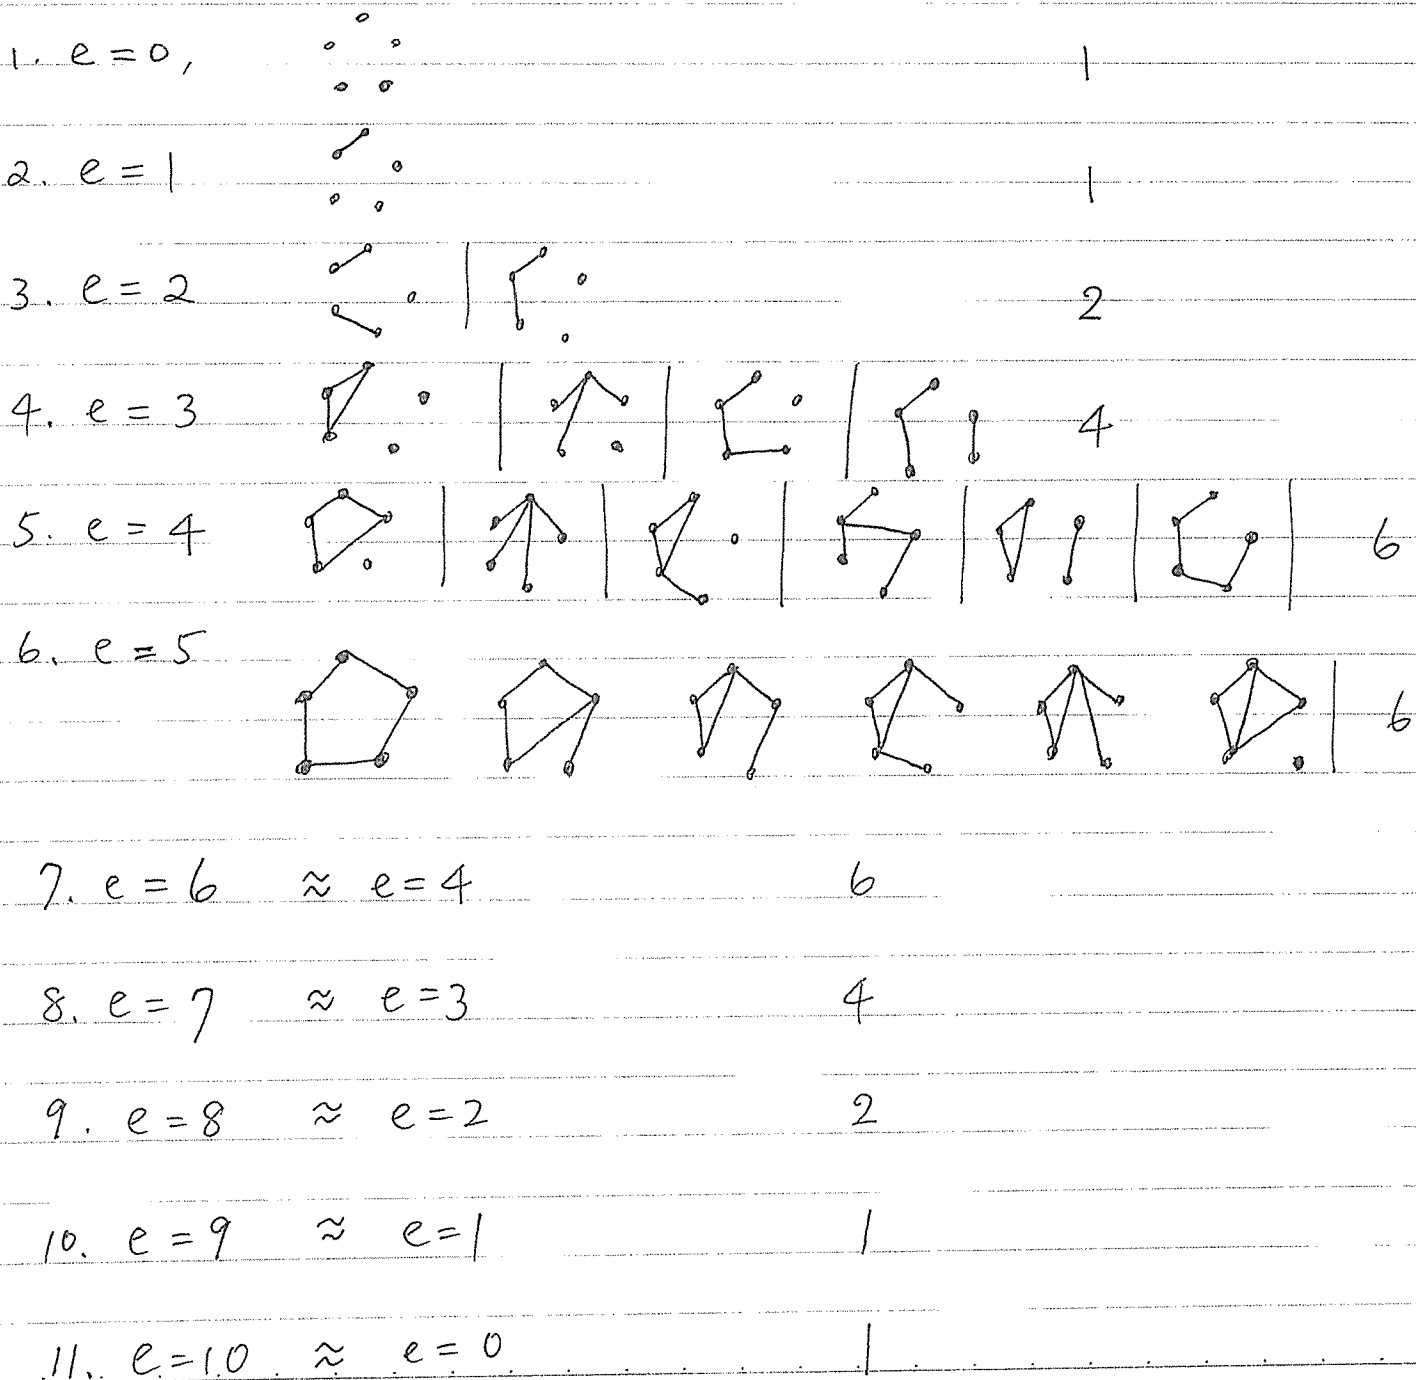 1. e = 0, 1
2. e = 1 1
3. e = 2 2
4. e = 3 4
5. e = 4 6
6. e = 5 6
7. e = 6 ≈ e = 4 6
8. e = 7 ≈ e = 3 4
9. e = 8 ≈ e = 2 2
10. e = 9 ≈ e = 1 1
11. e = 10 ≈ e = 0 1